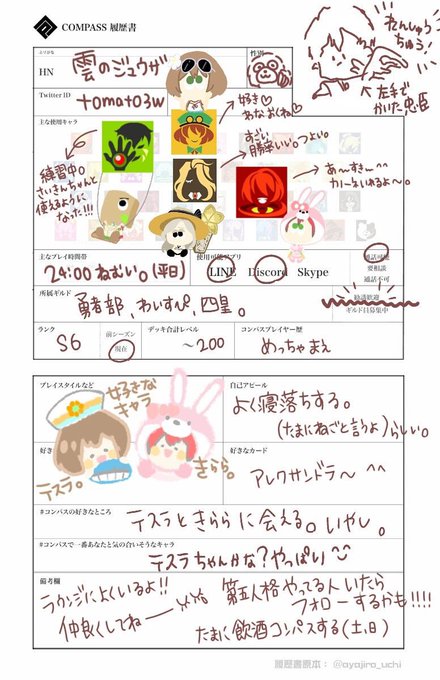 COMPASS 履歴書
れんしゅう
ちゅう!
ふりがな
HN
雲のジュウザ
性別
←左手で
かいた忠臣
Twitter ID
tomato3w
主な使用キャラ
好き♡
すごい
勝率いい。つよい。
あ〜すきー^^
練習中。
さいきんちゃんと
使えるように
なった!!!
主なプレイ時間帯
24:00 ねむい。(平日)
使用可能アプリ
LINE Discord Skype
通話可能
要相談
通話不可
所属ギルド
勇者部、わいすぴ、四皇。
勧誘歓迎
ギルド員募集中
ランク
S6
前シーズン
現在
デッキ合計レベル
〜200
コンパスプレイヤー歴
めっちゃまえ
プレイスタイルなど
好きな
キャラ
テスラ。
きらら。
自己アピール
よく寝落ちする。
(たまにねごと言うよ)らしい。
好き
好きなカード
アレクサンドラ〜 ^^
#コンパスの好きなところ
テスラときららに会える。いやし。
#コンパスで一番あなたと気の合いそうなキャラ
テスラちゃんかな?やっぱい
備考欄
ラウンジによくいるよ!!
仲良くしてねー
第五人格やってる人いたら
フォローするかも!!!!
たまに飲酒コンパスする(土,日)
履歴書原本: @ayajiro_uchi